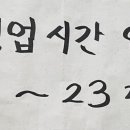 업 시간
~ 23